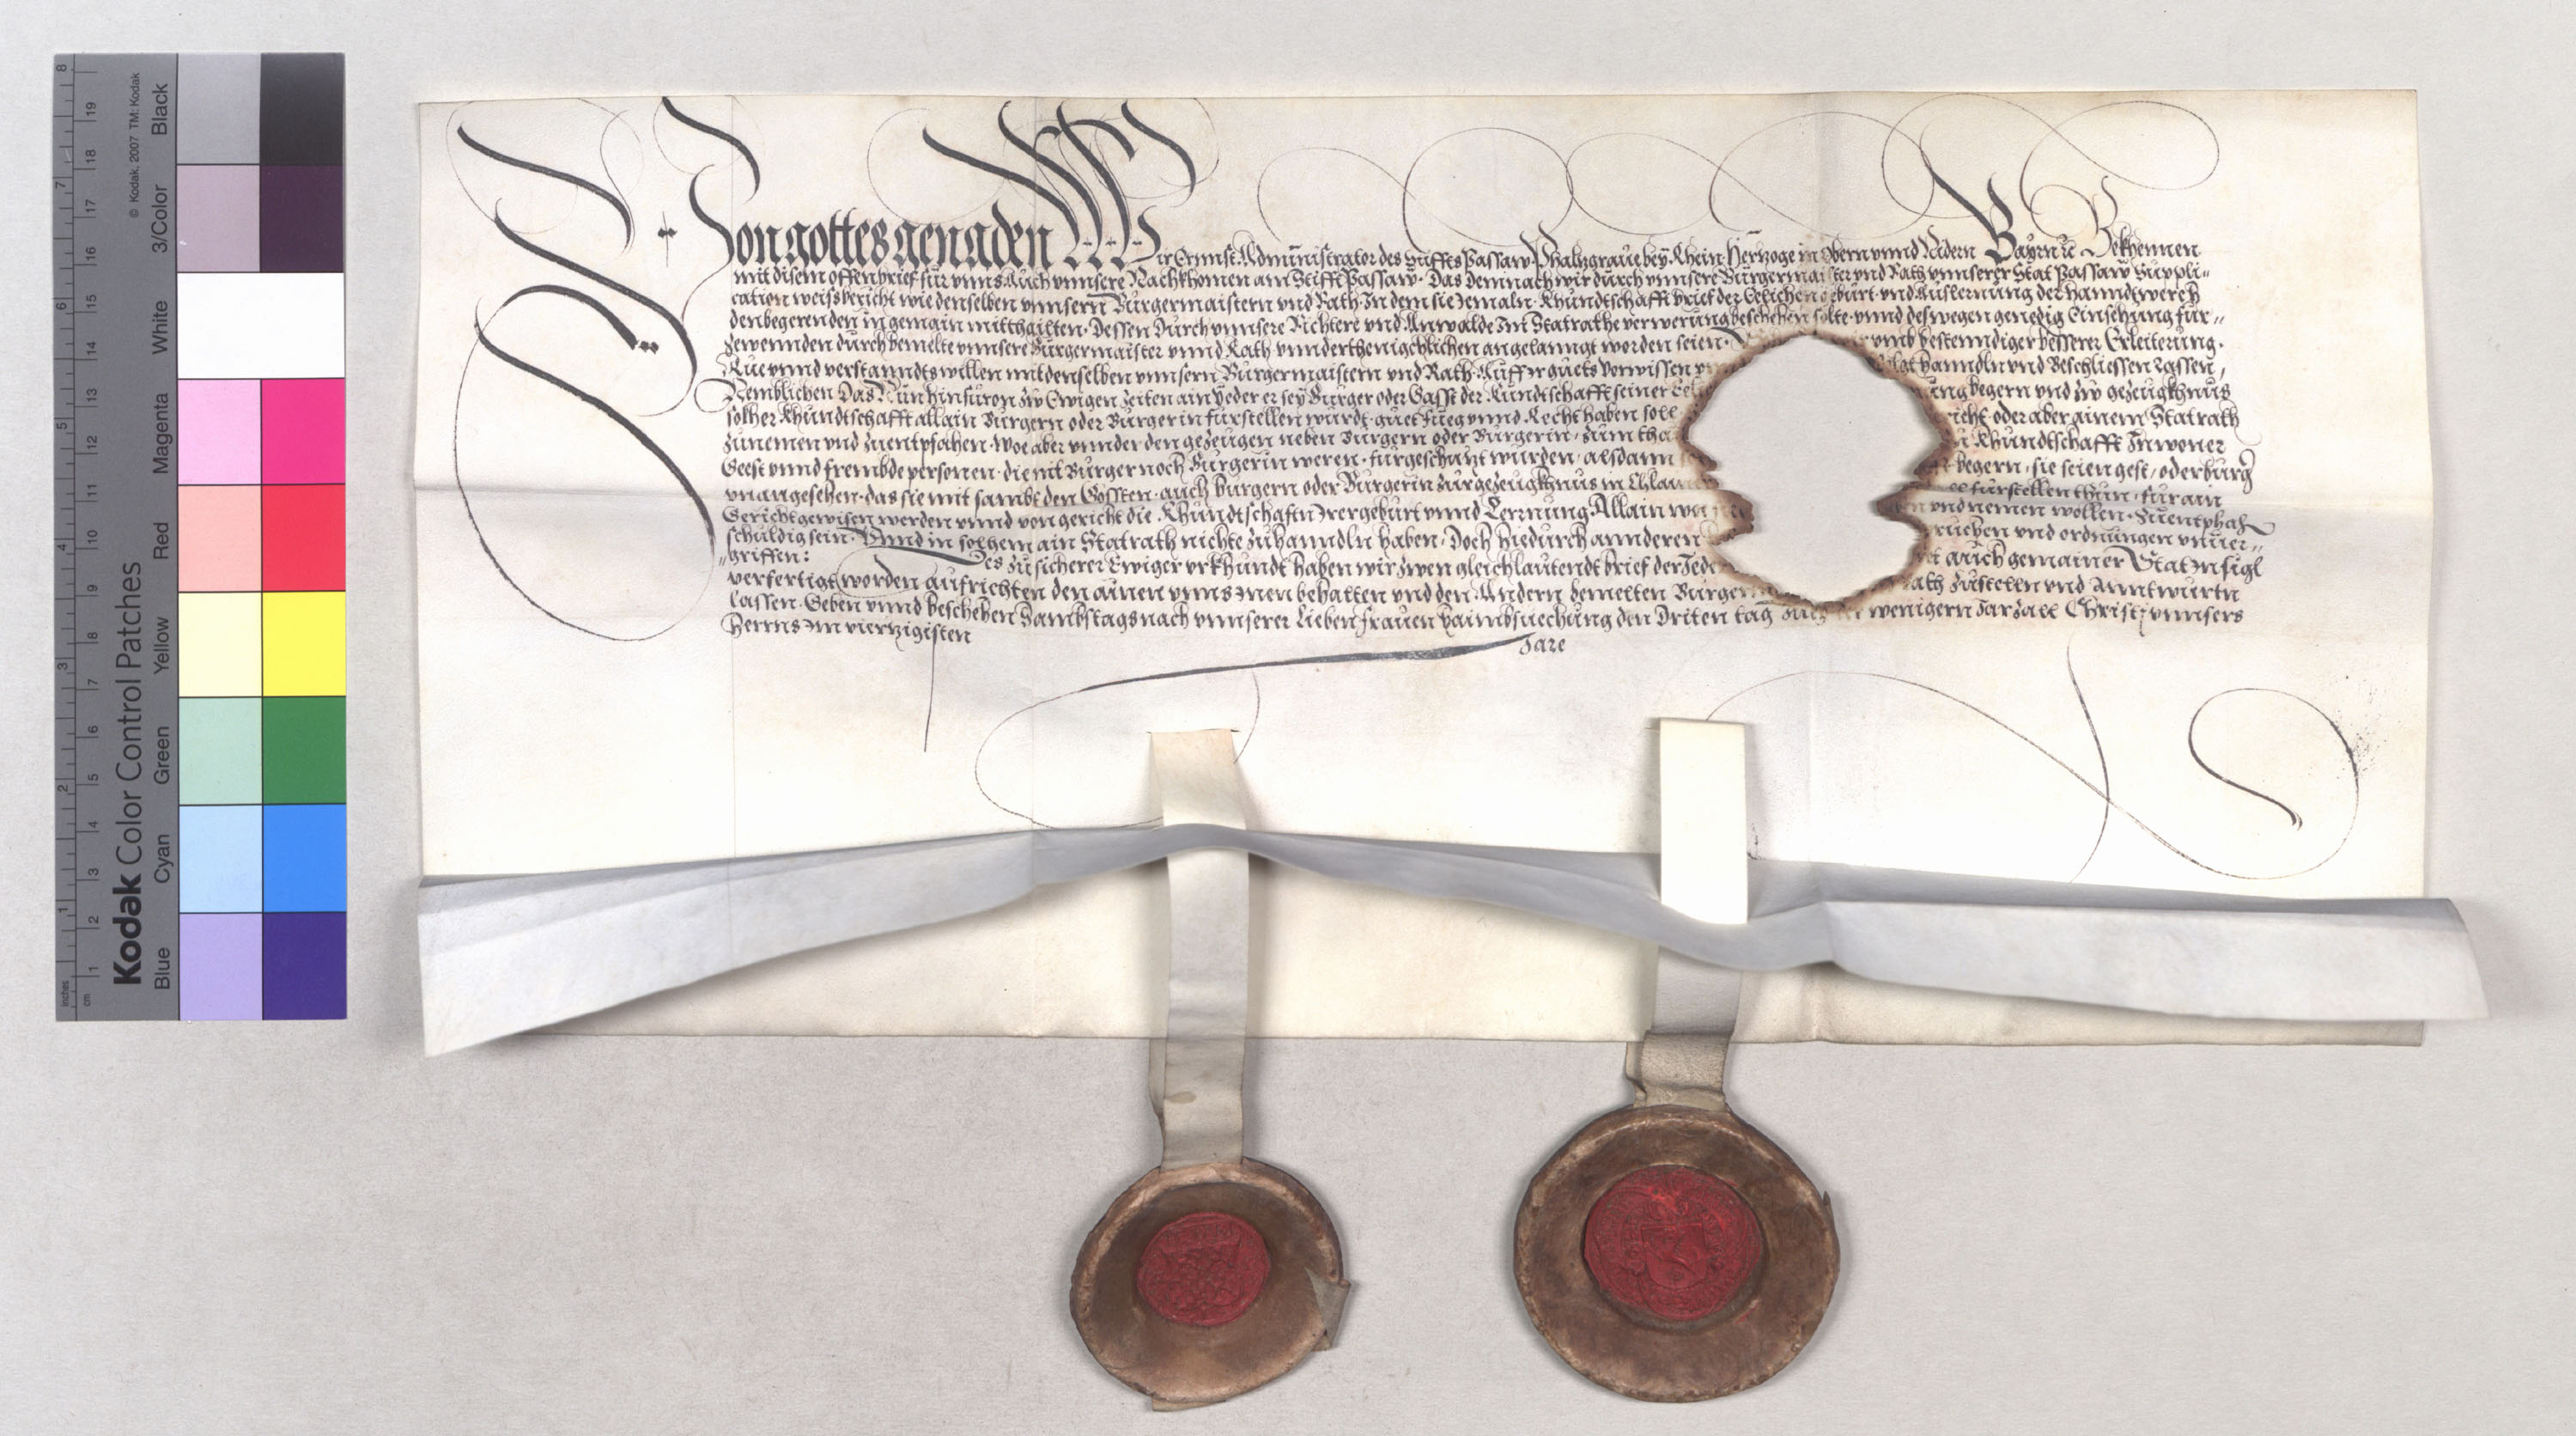 Von gottes genaden Wir Ernnst Administrator des Stiffts Passaw Phaltzgraue bey Rhein Hertzoge in Obern vnnd Nidern Bayrn ꝛc Bekhennen
mit disem offen brief für vnns Auch vnnsere Nachkhomen am Stifft Passaw. Das demnach wir durch vnnsere Burgermaister vnd Rath vnnserer Stat Passaw Suppli⸗
cation weiss bericht wie denselben vnnsern Burgermaistern vnd Rath In dem sie zemaln Khundtschafft brief der Eelichen geburt vnd Auslernung der hanndtwerch
den begerenden in gemain mitthailten. Dessen durch vnnsere Richtere vnd Anwalde Im Statrathe verwerung beschehen solte vnnd deswegen genedig Einsehung für⸗
zewennden durch bemelte vnnsere Burgermaister vnnd Rath vnnderthenigchlichen angelanngt worden seien. vmb bestenndiger besserer Erleiterung.
Rue vnnd verstanndts willen mit denselben vnnsern Burgermaistern vnd Rath Auff guets vorwissen hanndln vnd Beschliessen Lassen,
Nemblichen Das Nun hinfuron zw Ewigen Zeiten ain Yeder er sey Burger oder Gasst der Kundtschafft seiner begern vnd zw gezeugkhnus
solher Khundtschafft allain Burgern oder Burgerin fürstellen wurdt guet fueg vnnd Recht haben soll oder aber ainem Statrath
zunemen vnd zuentpfahen. Woe aber vnnder den gezeugen neben Burgern oder Burgerin, zum tha Khundtschafft Inwoner
Gesst vnnd frembde personen die nit Burger noch Burgerin weren furgeschutzt wurden, alsdann begern, sie seien gest, oder burg
vnangesehen das sie mit sambt den Gössten auch burgern oder Burgerin zur gezeugkhnus in fürstellen thun, für ain
Gericht gewisen werden vnnd von gericht die Khundtschafftn Irer geburt vnnd Lernnung Allain vnd nemen wollen. Zuentphah
schuldig sein. Vnnd in solhem ain Statrath nichts zuhanndln haben. Doch hiedurch annderen vnd ordnungen vnuer⸗
⸗griffen: Des zu sicherer Ewiger vrkhundt haben wir zwen gleichlautendt brief der Jede auch gemainer Stat Insigl
verfertigt worden aufrichten den ainen vnns Inen behalten vnd den Andern bemelten Burger zustellen vnd Anntwurtn
lassen. Geben vnnd beschehen Sambstags nach vnnserer Lieben frauen haimbsuechung den Driten tag wenigern Jarzall Christj vnnsers
Herrns Im viertzigisten Jare
Kodak Color Control Patches
© Kodak, 2007 TM: Kodak
inches 1 2 3 4 5 6 7 8
cm 1 2 3 4 5 6 7 8 9 10 11 12 13 14 15 16 17 18 19
Blue Cyan Green Yellow Red Magenta White 3/Color Black